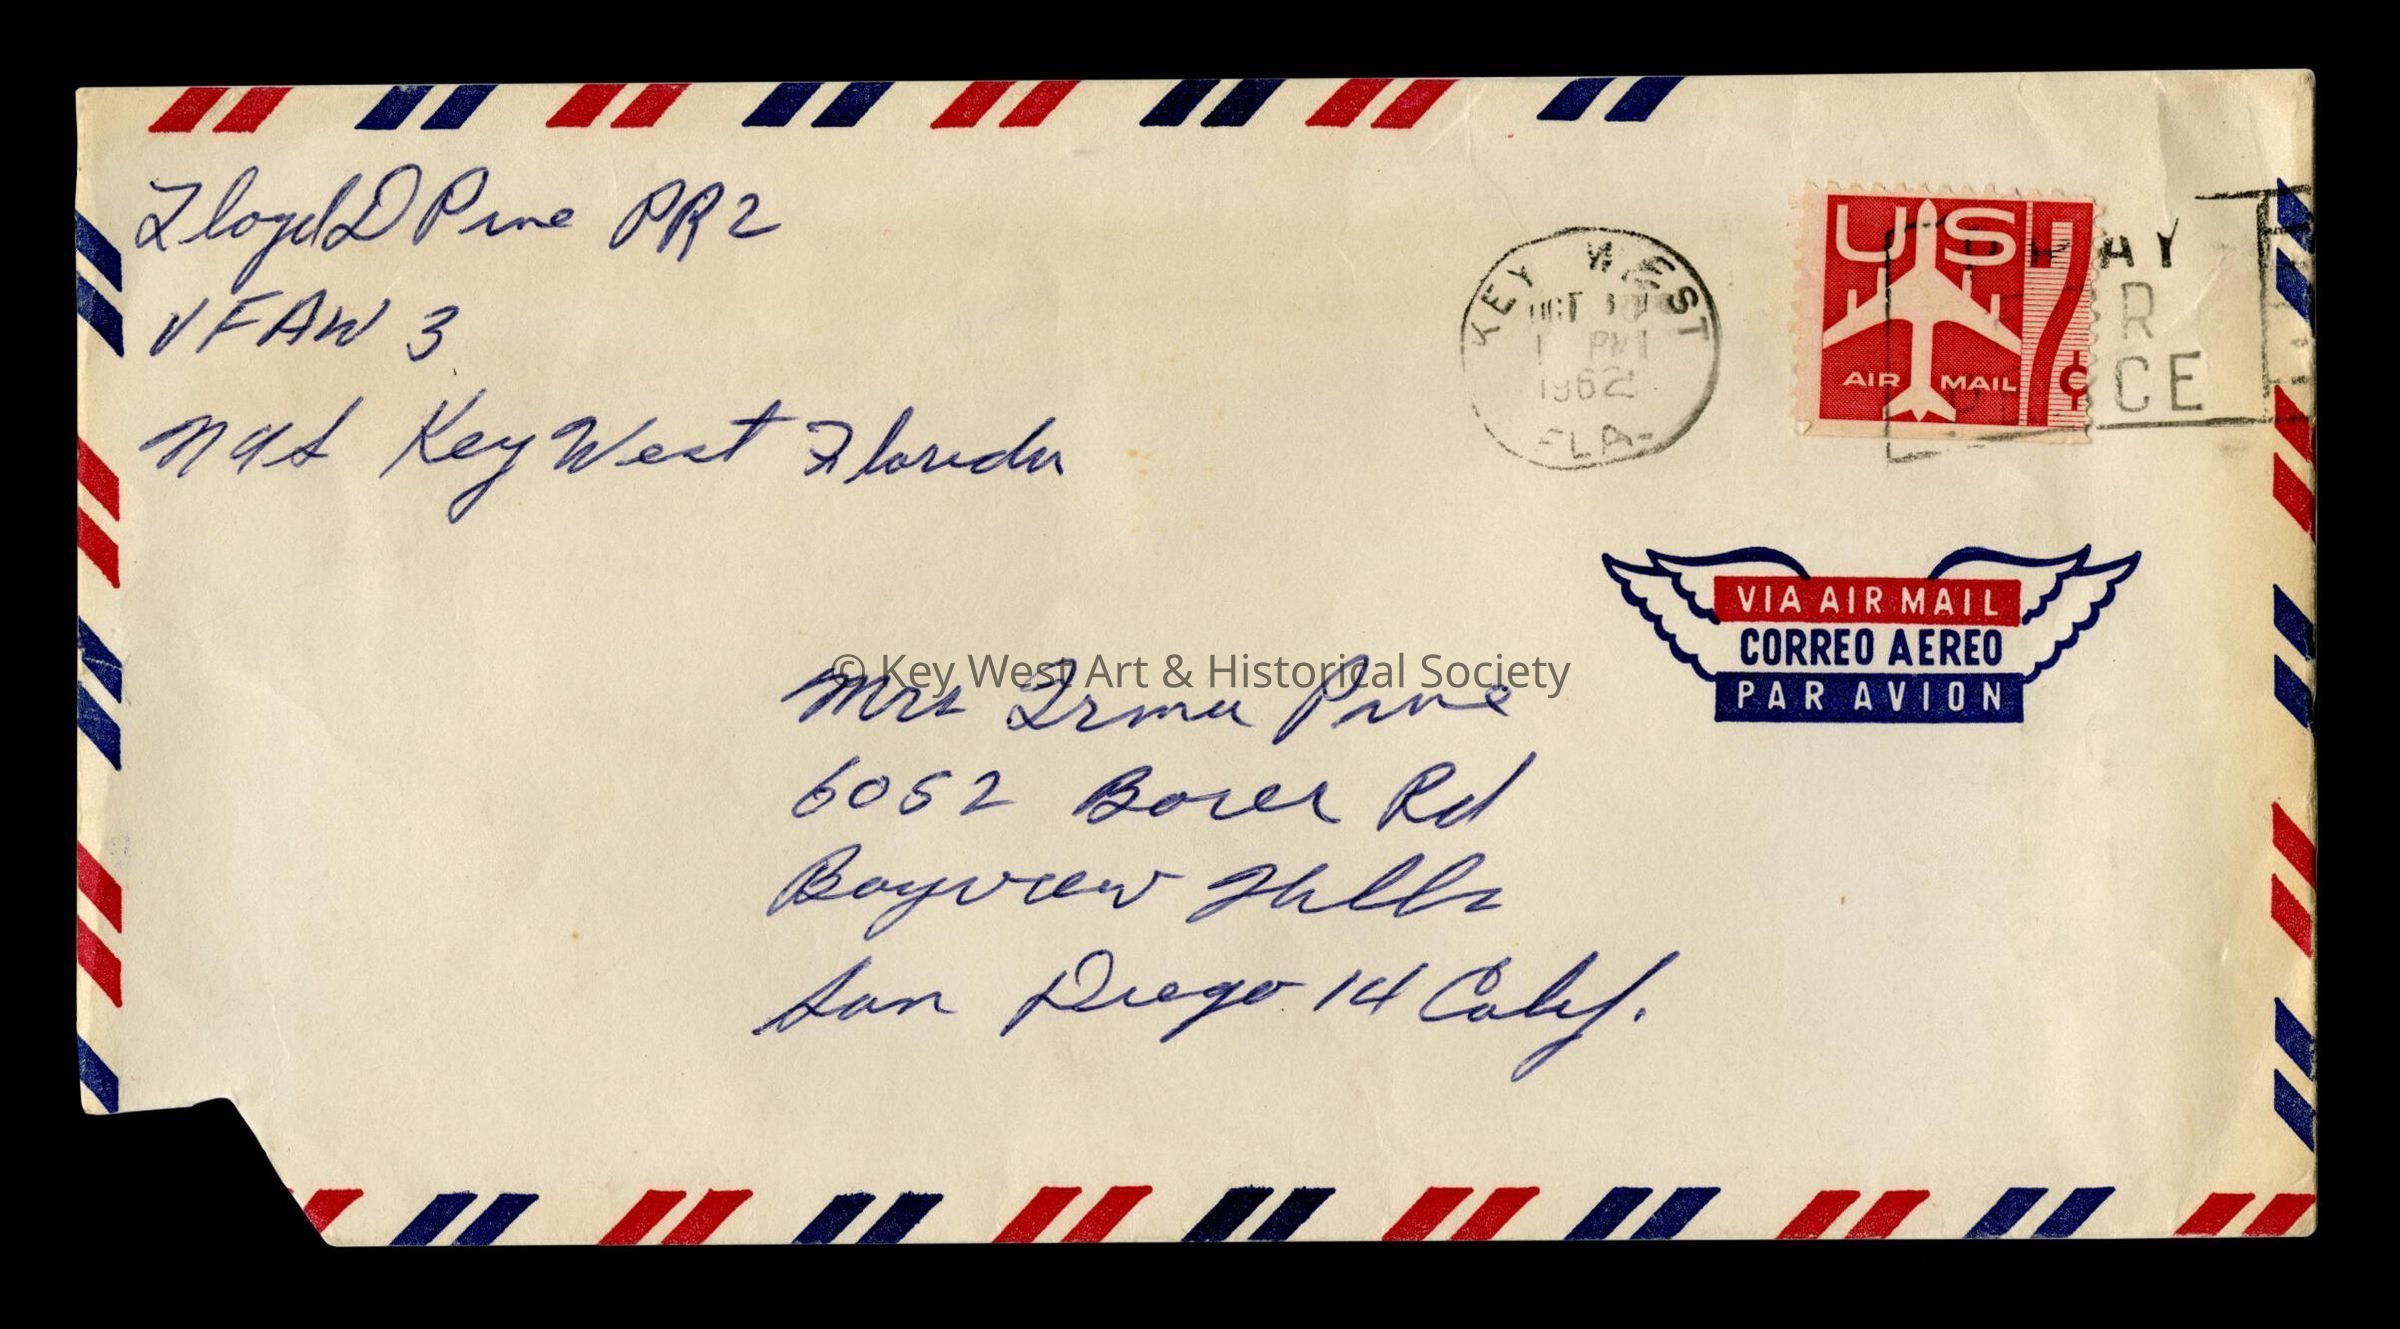 Lloyd D Pine PR2
VFAW 3
NAS Key West Florida
KEY WEST
OCT
PM
1962
FLA-
US
7¢
AIR MAIL
PRAY
FOR
PEACE
VIA AIR MAIL
CORREO AEREO
PAR AVION
© Key West Art & Historical Society
Mrs Irma Pine
6052 Borer Rd
Bayview Hills
San Diego 14 Calif.